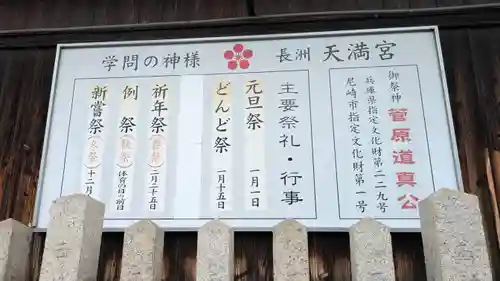 学問の神様
長洲 天満宮
御祭神 菅原道真公
兵庫県指定文化財第二二九号
尼崎市指定文化財第一号
主要祭礼・行事
元旦祭 一月一日
どんど祭 一月十五日
祈年祭(春祭)二月二五日
例祭(秋祭)体育の日の前日
新嘗祭(火祭)十二月